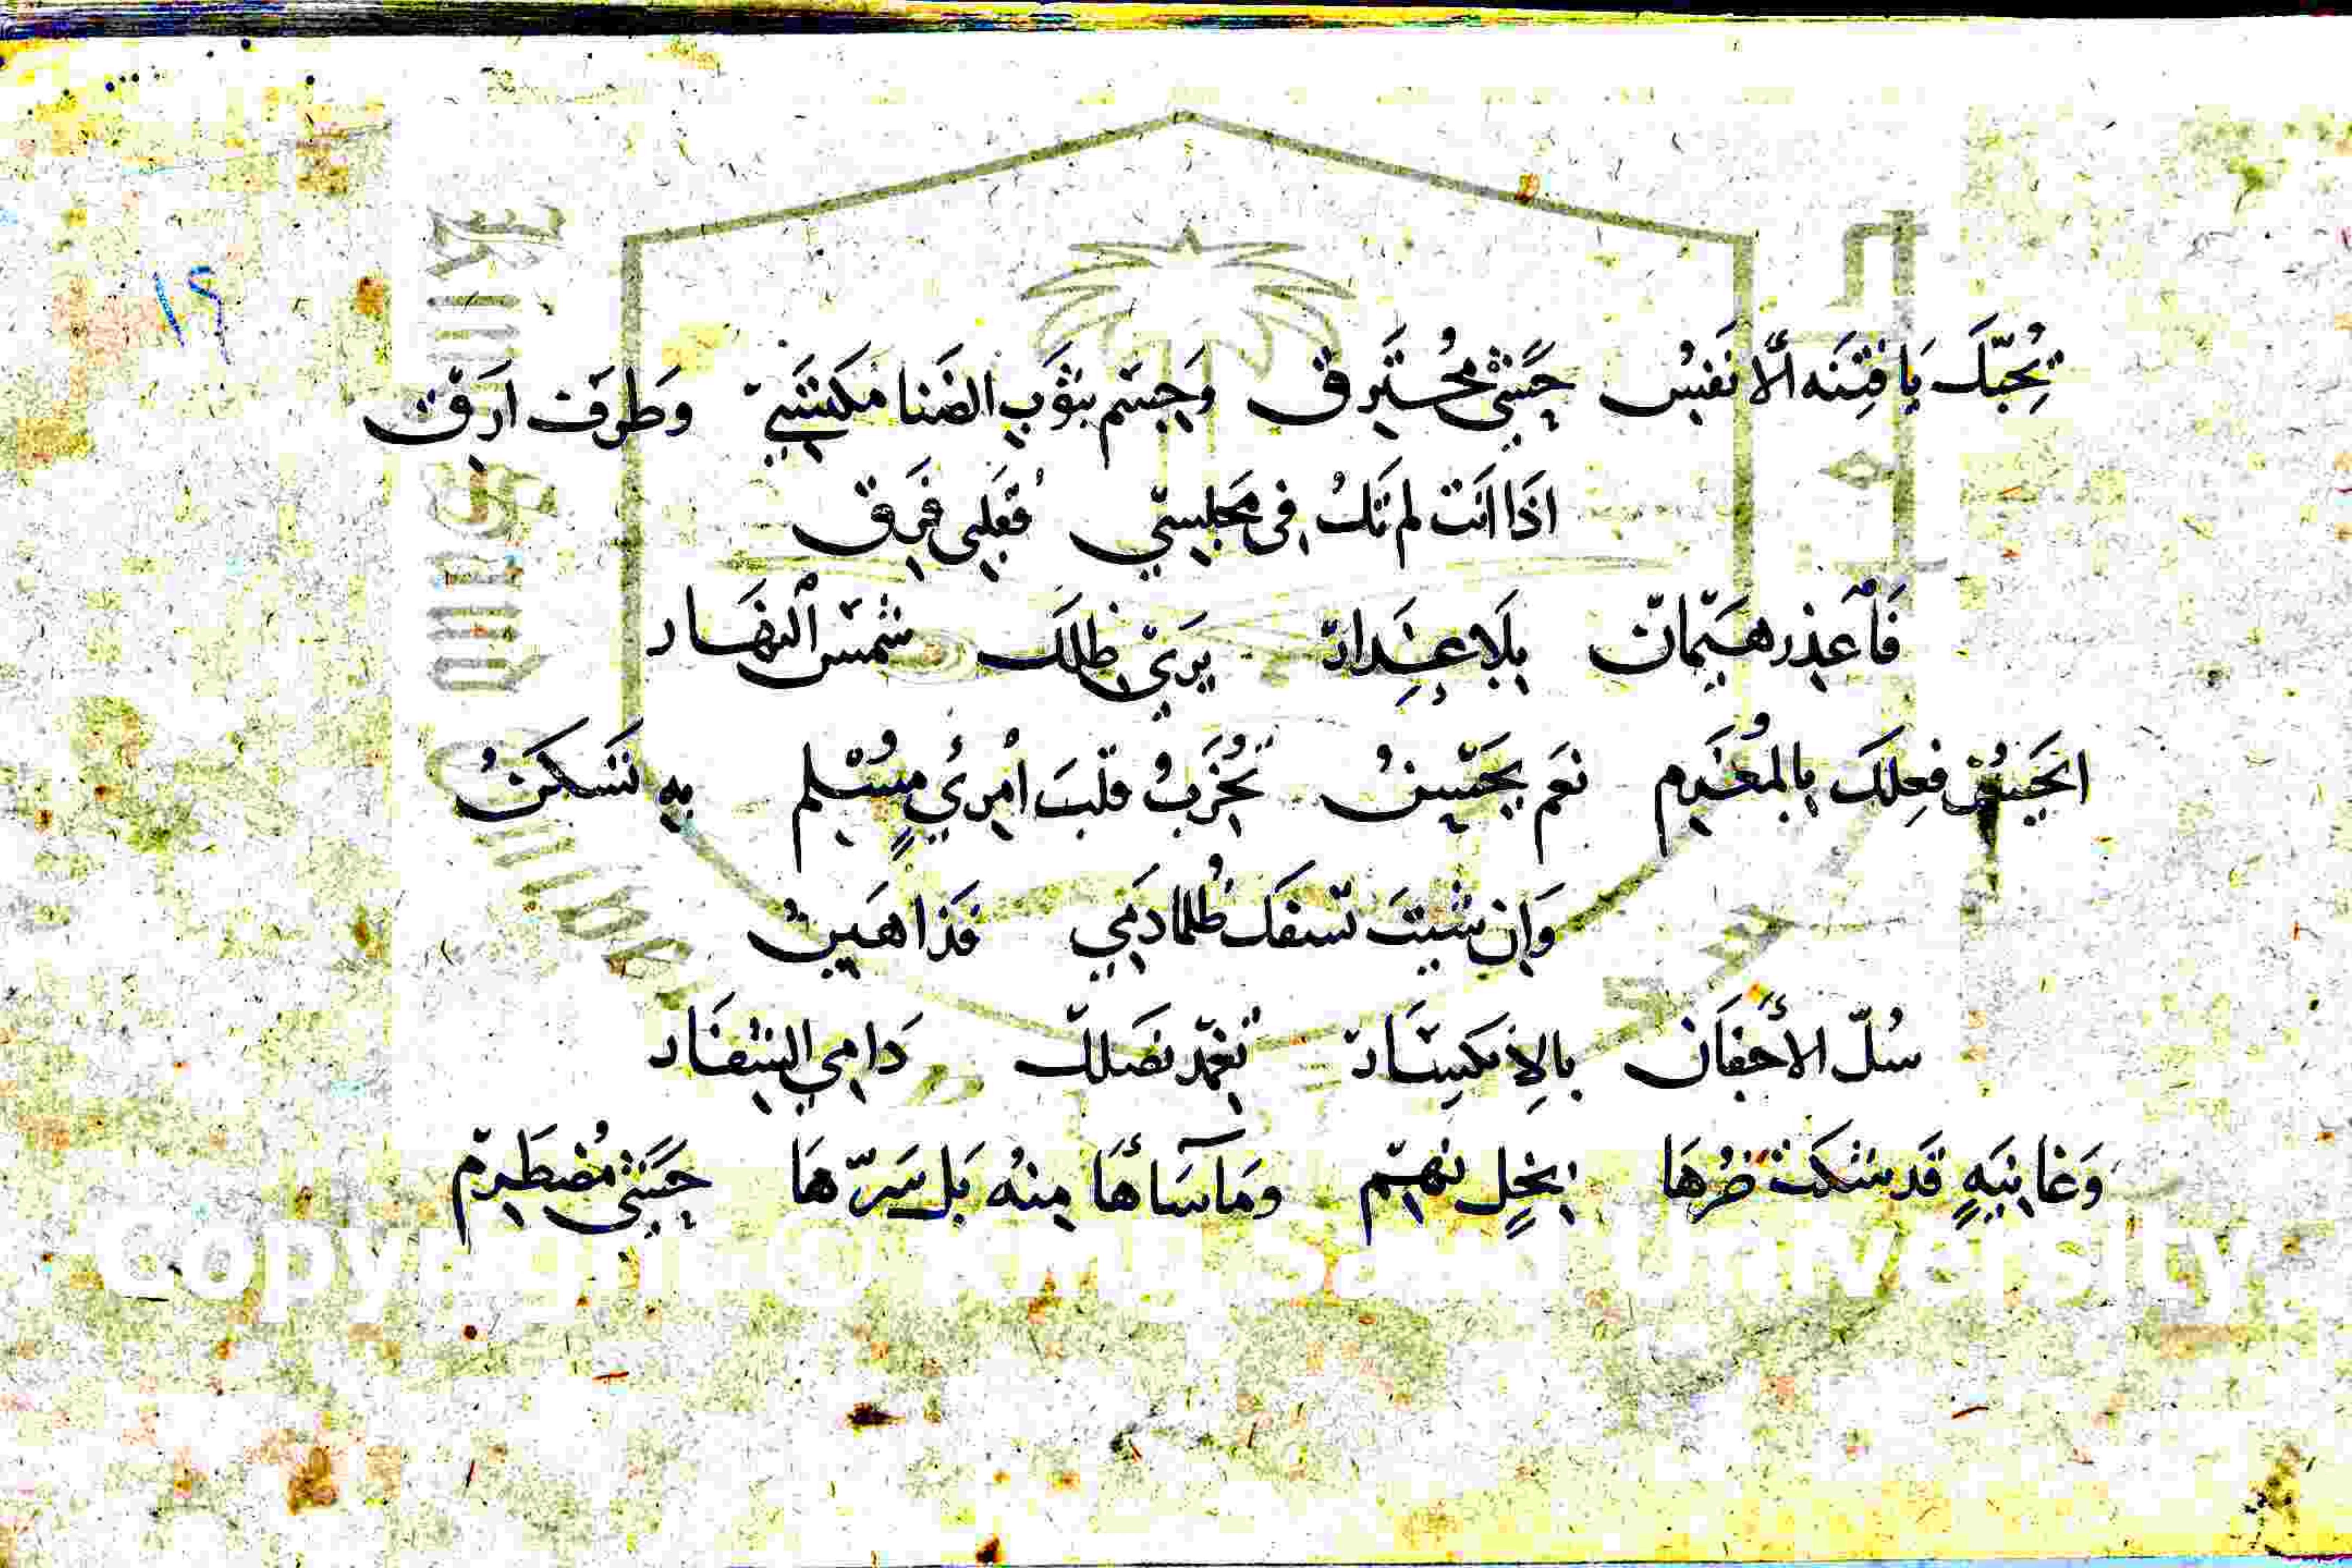 ١٩
بِحُبّكَ يَا فِتنَه اَلا نفيس حَشَى مُحترِق وَجِسم بثوبِ الضَنا مكتسَي وَطرف ارق
اذَا انَت لم تَكُ في مَجلِسي فقلبِي فَرِق
فَاعذِر هَيمَان بِلَا عِذَار يرَى ظلَك شمسَ النهَار
اتحسِنُ فِعلكَ بالمُغرَم نعَم يحسن تُخرّبُ قلبَ امْرِيُ مسْلم بِهِ تَسكنُ
وَان شيتَ تسفك ظُلمًا دَمِي فَذَا هَين
سُلّ الأجفَان بالِانكِسَار تغمد نصَلك دَامي الشفَار
وَغَانيَهٍ قَد شكَت ضُرهَا بخلٍ نهم ومَا سَاءهَا مِنهُ بَل سَرّهَا حَشَى مُضطَرِم
Copyright © King Saud University
KING SAUD UNIVERSITY